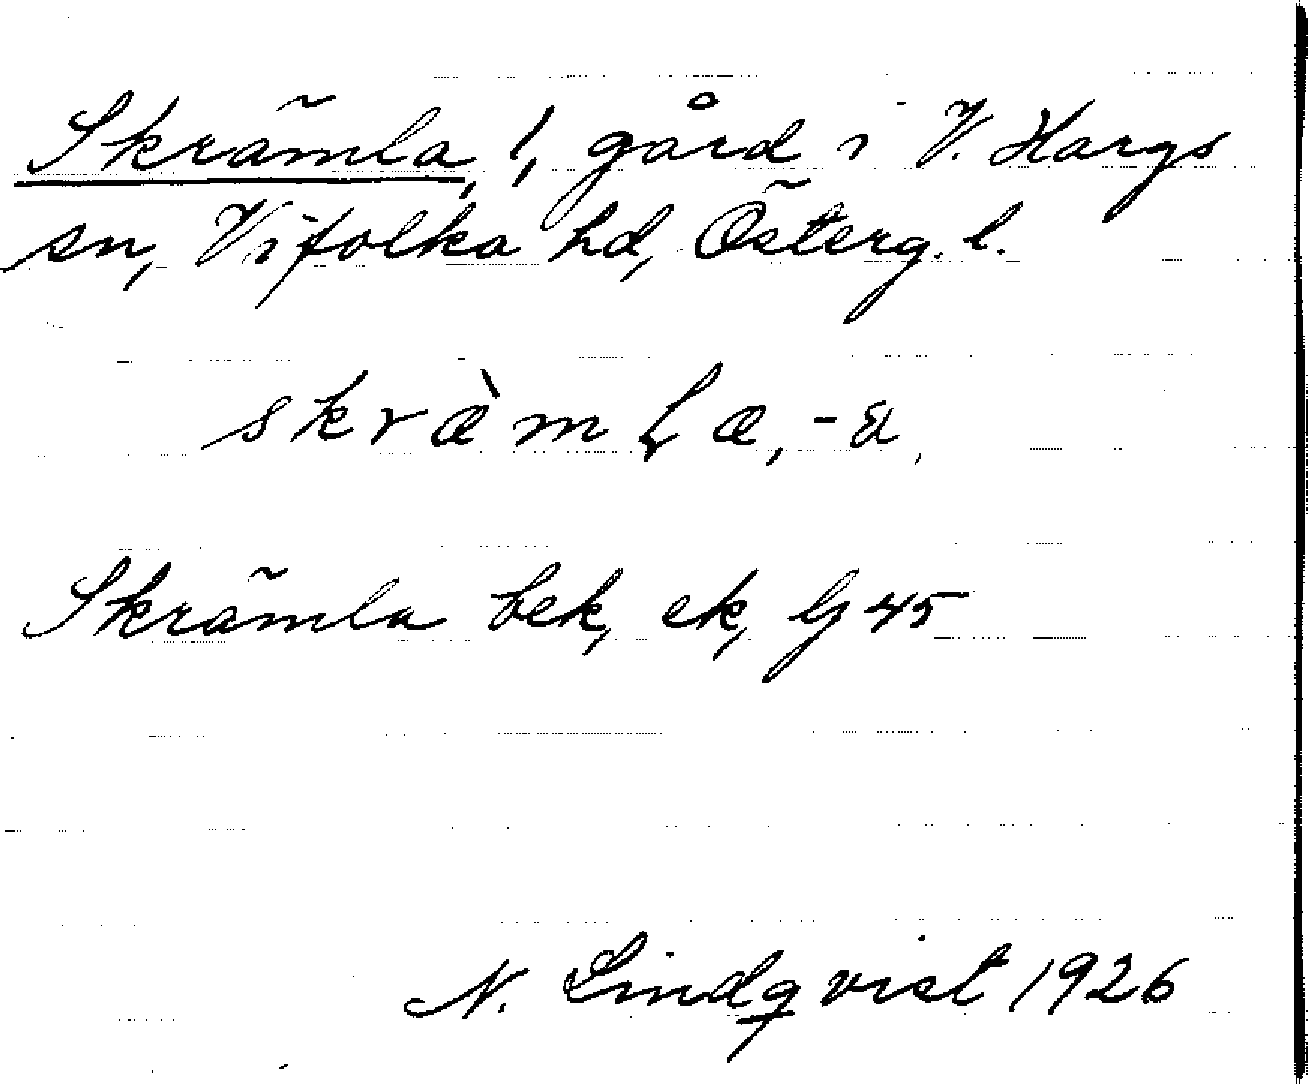 Skrämla, 1, gård i V. Hargs
sn, Vifolka hd, Österg. l.
skræ̀mɭæ, -a,
Skrämla bek, ek, Gj 45
N. Lindqvist 1926